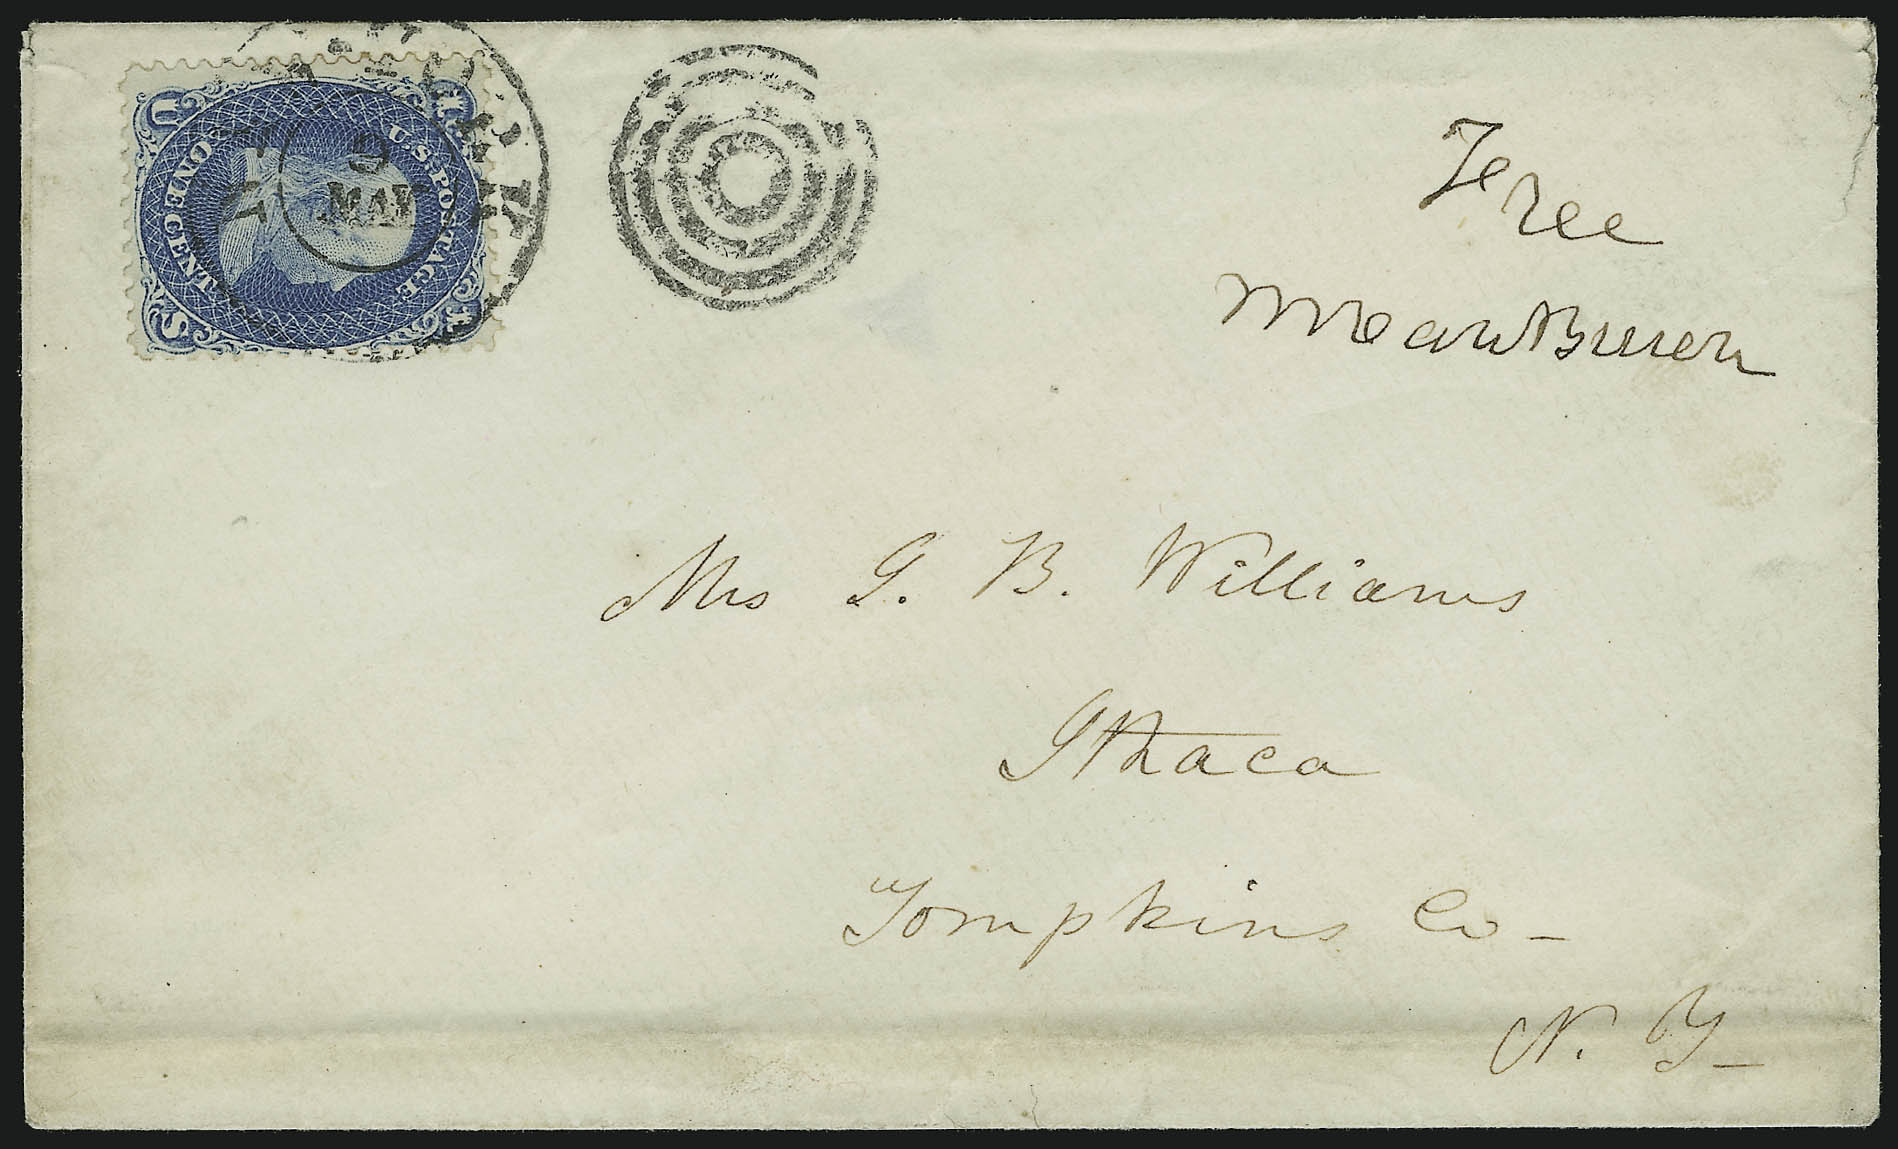 NEW-YORK
9
MAY
U.S. POSTAGE
ONE CENT.
U S
Free
MVan Buren
Mrs G. B. Williams
Ithaca
Tompkins Co-
N. Y-